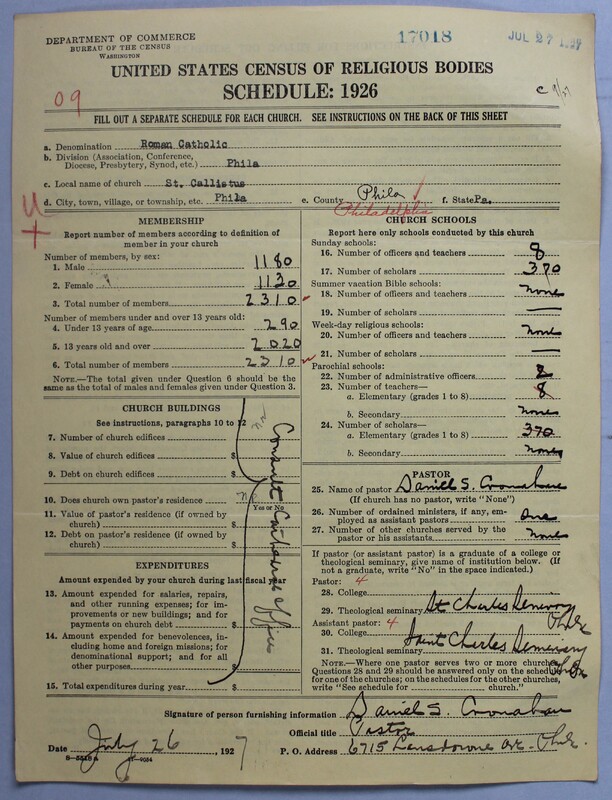 DEPARTMENT OF COMMERCE
BUREAU OF THE CENSUS
WASHINGTON
17018
JUL 27 1927
UNITED STATES CENSUS OF RELIGIOUS BODIES
SCHEDULE: 1926
09
FILL OUT A SEPARATE SCHEDULE FOR EACH CHURCH. SEE INSTRUCTIONS ON THE BACK OF THIS SHEET
a. Denomination Roman Catholic
b. Division (Association, Conference,
Diocese, Presbytery, Synod, etc.) Phila
c. Local name of church St. Callistus
d. City, town, village, or township, etc. Phila e. County Phila f. State Pa.
Philadelphia
MEMBERSHIP
Report number of members according to definition of
member in your church
Number of members, by sex:
1. Male 1180
2. Female 1130
3. Total number of members 2310
Number of members under and over 13 years old:
4. Under 13 years of age 290
5. 13 years old and over 2020
6. Total number of members 2310
NOTE.—The total given under Question 6 should be the
same as the total of males and females given under Question 3.
CHURCH BUILDINGS
See instructions, paragraphs 10 to 12
7. Number of church edifices
8. Value of church edifices $
9. Debt on church edifices $
10. Does church own pastor's residence
Yes or No
11. Value of pastor's residence (if owned by
church) $
12. Debt on pastor's residence (if owned by
church) $
Consult Cathedral Office
EXPENDITURES
Amount expended by your church during last fiscal year
13. Amount expended for salaries, repairs,
and other running expenses; for im-
provements or new buildings; and for
payments on church debt $
14. Amount expended for benevolences,
including home and foreign missions; for
denominational support; and for all
other purposes $
15. Total expenditures during year $
CHURCH SCHOOLS
Report here only schools conducted by this church
Sunday schools:
16. Number of officers and teachers 8
17. Number of scholars 370
Summer vacation Bible schools:
18. Number of officers and teachers none
19. Number of scholars —
Week-day religious schools:
20. Number of officers and teachers none
21. Number of scholars —
Parochial schools:
22. Number of administrative officers 2
23. Number of teachers—
a. Elementary (grades 1 to 8) 8
b. Secondary none
24. Number of scholars—
a. Elementary (grades 1 to 8) 370
b. Secondary none
PASTOR
25. Name of pastor Daniel S. Cronahan
(If church has no pastor, write "None")
26. Number of ordained ministers, if any, em-
ployed as assistant pastors One
27. Number of other churches served by the
pastor or his assistants none
If pastor (or assistant pastor) is a graduate of a college or
theological seminary, give name of institution below. (If
not a graduate, write "No" in the space indicated.)
Pastor: 4
28. College
29. Theological seminary St Charles Seminary
Phila
Assistant pastor: 4
30. College
31. Theological seminary Saint Charles Seminary
Phila
NOTE.—Where one pastor serves two or more churches,
Questions 28 and 29 should be answered only on the schedule
for one of the churches; on the schedules for the other churches,
write "See schedule for church."
Signature of person furnishing information Daniel S. Cronahan
Official title Pastor
Date July 26, 1927 P. O. Address 6715 Lansdowne Ave - Phila.